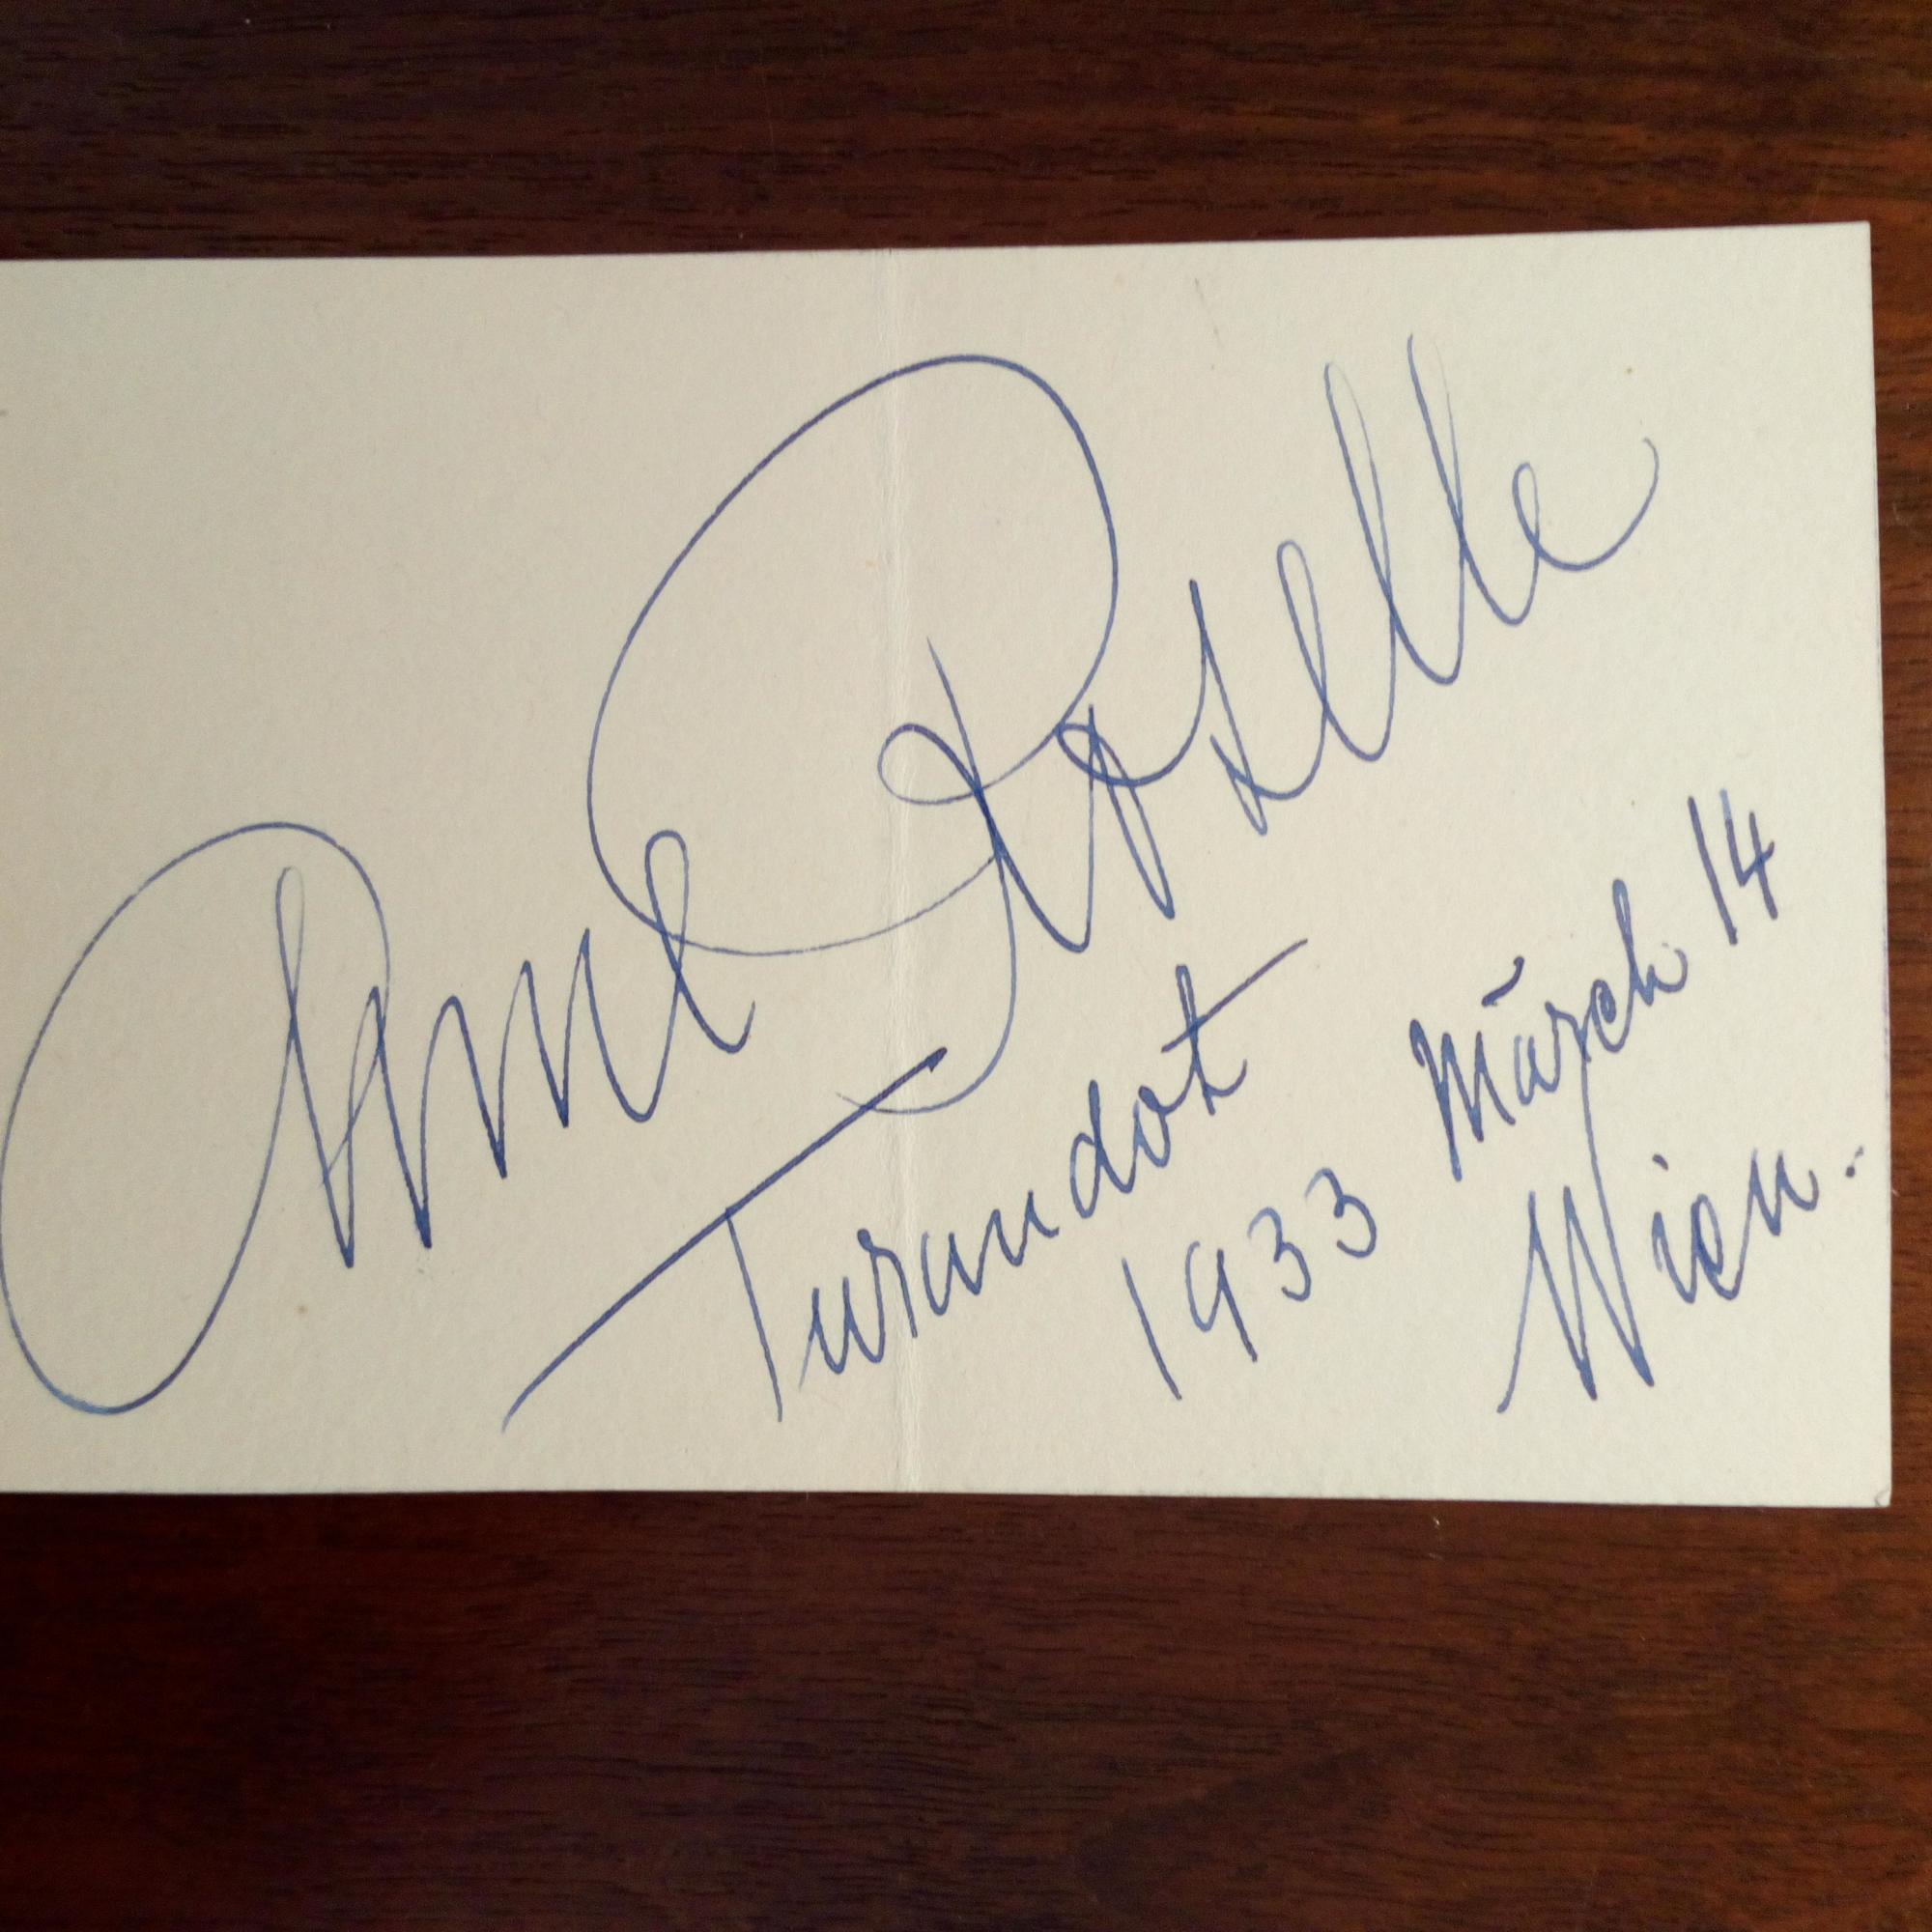 Anne Roselle
Turandot
1933 März 14
Wien.